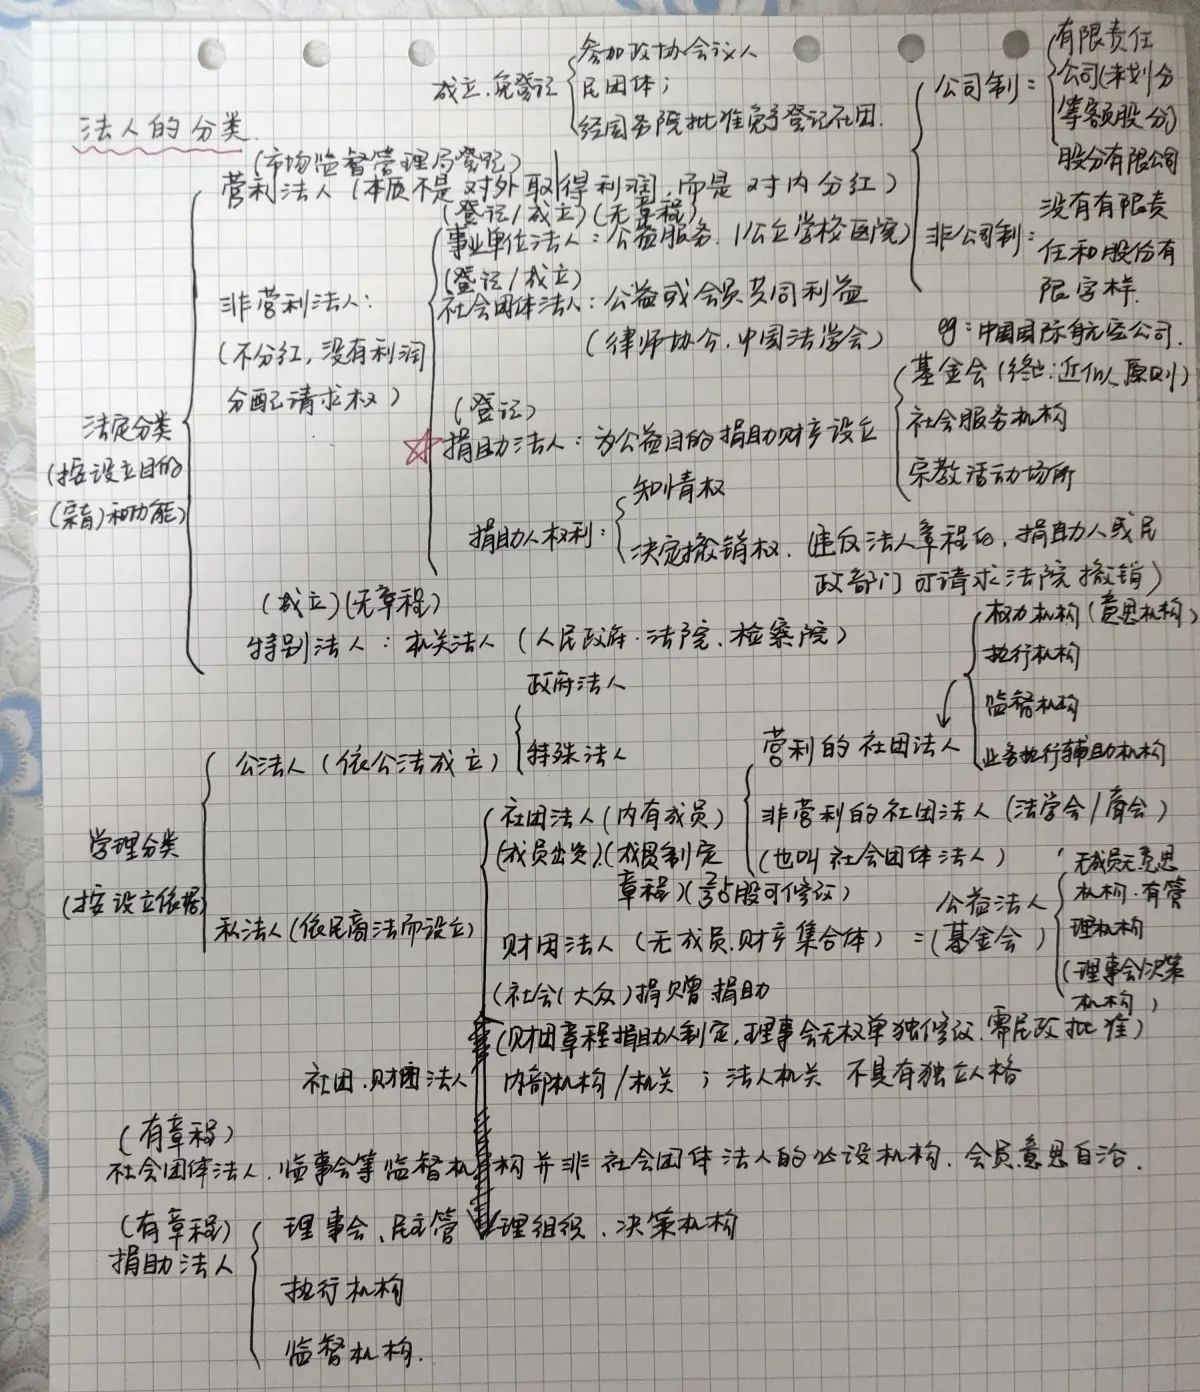 法人的分类
成立.免登记
参加政协会议人
民团体；
经国务院批准免予登记社团.
公司制：
有限责任
公司(未划分
等额股份)
股份有限公司
非公司制：
没有有限责
任和股份有
限字样.
eg：中国国际航空公司.
法定分类
(按设立目的
(宗旨)和功能)
(市场监督管理局登记)
营利法人（本质不是对外取得利润，而是对内分红）
非营利法人：
(不分红，没有利润
分配请求权)
(登记/成立)(无章程)
事业单位法人：公益服务.(公立学校医院)
(登记/成立)
社会团体法人：公益或会员共同利益
(律师协会.中国法学会)
(登记)
☆捐助法人：为公益目的捐助财产设立
基金会(终止：近似原则)
社会服务机构
宗教活动场所
捐助人权利：
知情权
决定撤销权.(违反法人章程的，捐助人或民
政部门可请求法院撤销)
(成立)(无章程)
特别法人：机关法人（人民政府·法院、检察院）
学理分类
(按设立依据)
公法人（依公法成立）
政府法人
特殊法人
私法人(依民商法而设立)
社团法人(内有成员)
(成员出资).(成员制定
章程)(2/3占股可修改)
营利的社团法人
权力机构(意思机构)
执行机构
监督机构
业务执行辅助机构
非营利的社团法人(法学会/商会)
(也叫社会团体法人)
财团法人（无成员.财产集合体）=
公益法人
(基金会)
无成员无意思
机构.有管
理机构
(理事会/决策
机构)
(社会(大众)捐赠捐助
(财团章程捐助人制定，理事会无权单独修改.需民政批准)
社团.财团法人
内部机构/机关；法人机关 不具有独立人格
(有章程)
社会团体法人.监事会等监督机构并非社会团体法人的必设机构.会员意思自治.
(有章程)
捐助法人
理事会、民主管理组织、决策机构
执行机构
监督机构.